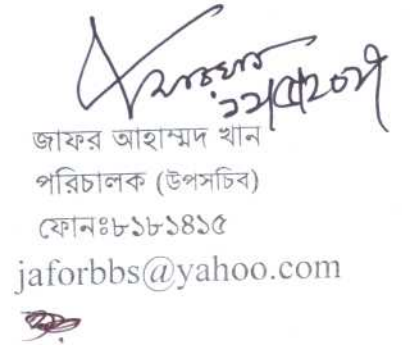 জাফর আহাম্মদ খান
পরিচালক (উপসচিব)
ফোনঃ৮১৮১৪১৫
jaforbbs@yahoo.com